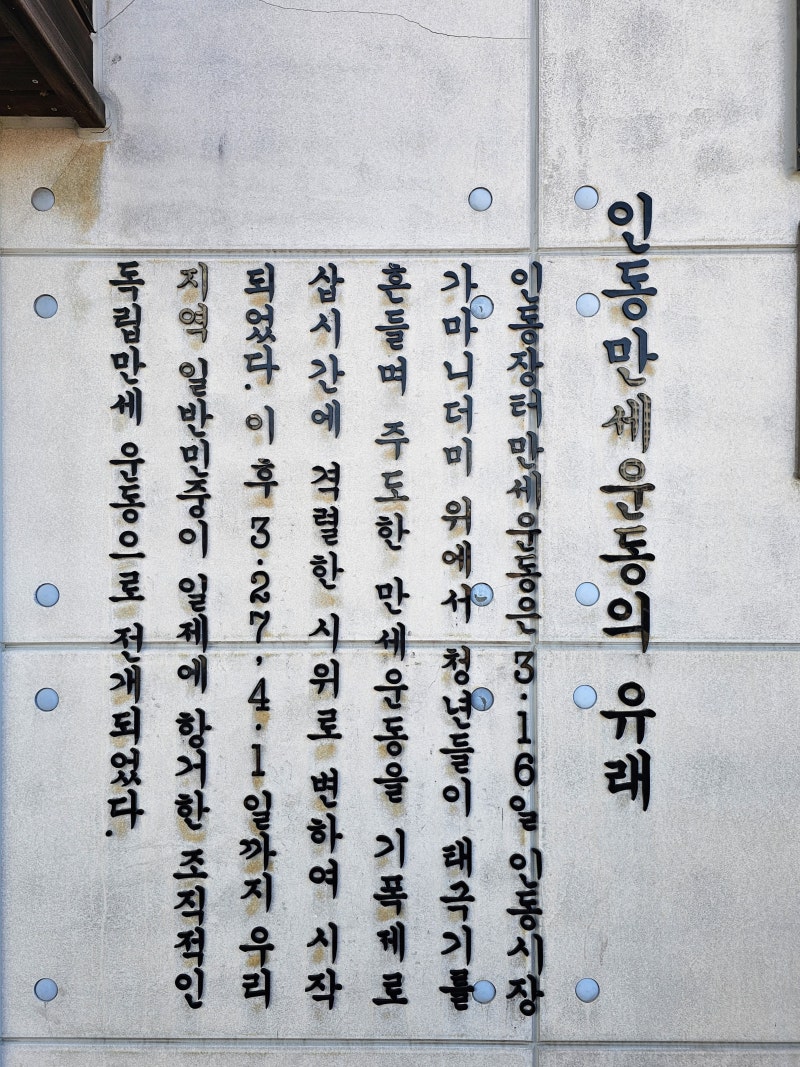 인동만세운동의 유래
인동장터만세운동은 3·16일 인동시장
가마니더미 위에서 청년들이 태극기를
흔들며 주도한 만세운동을 기폭제로
삽시간에 격렬한 시위로 변하여 시작
되었다. 이후 3·27, 4·1일까지 우리
지역 일반민중이 일제에 항거한 조직적인
독립만세 운동으로 전개되었다.